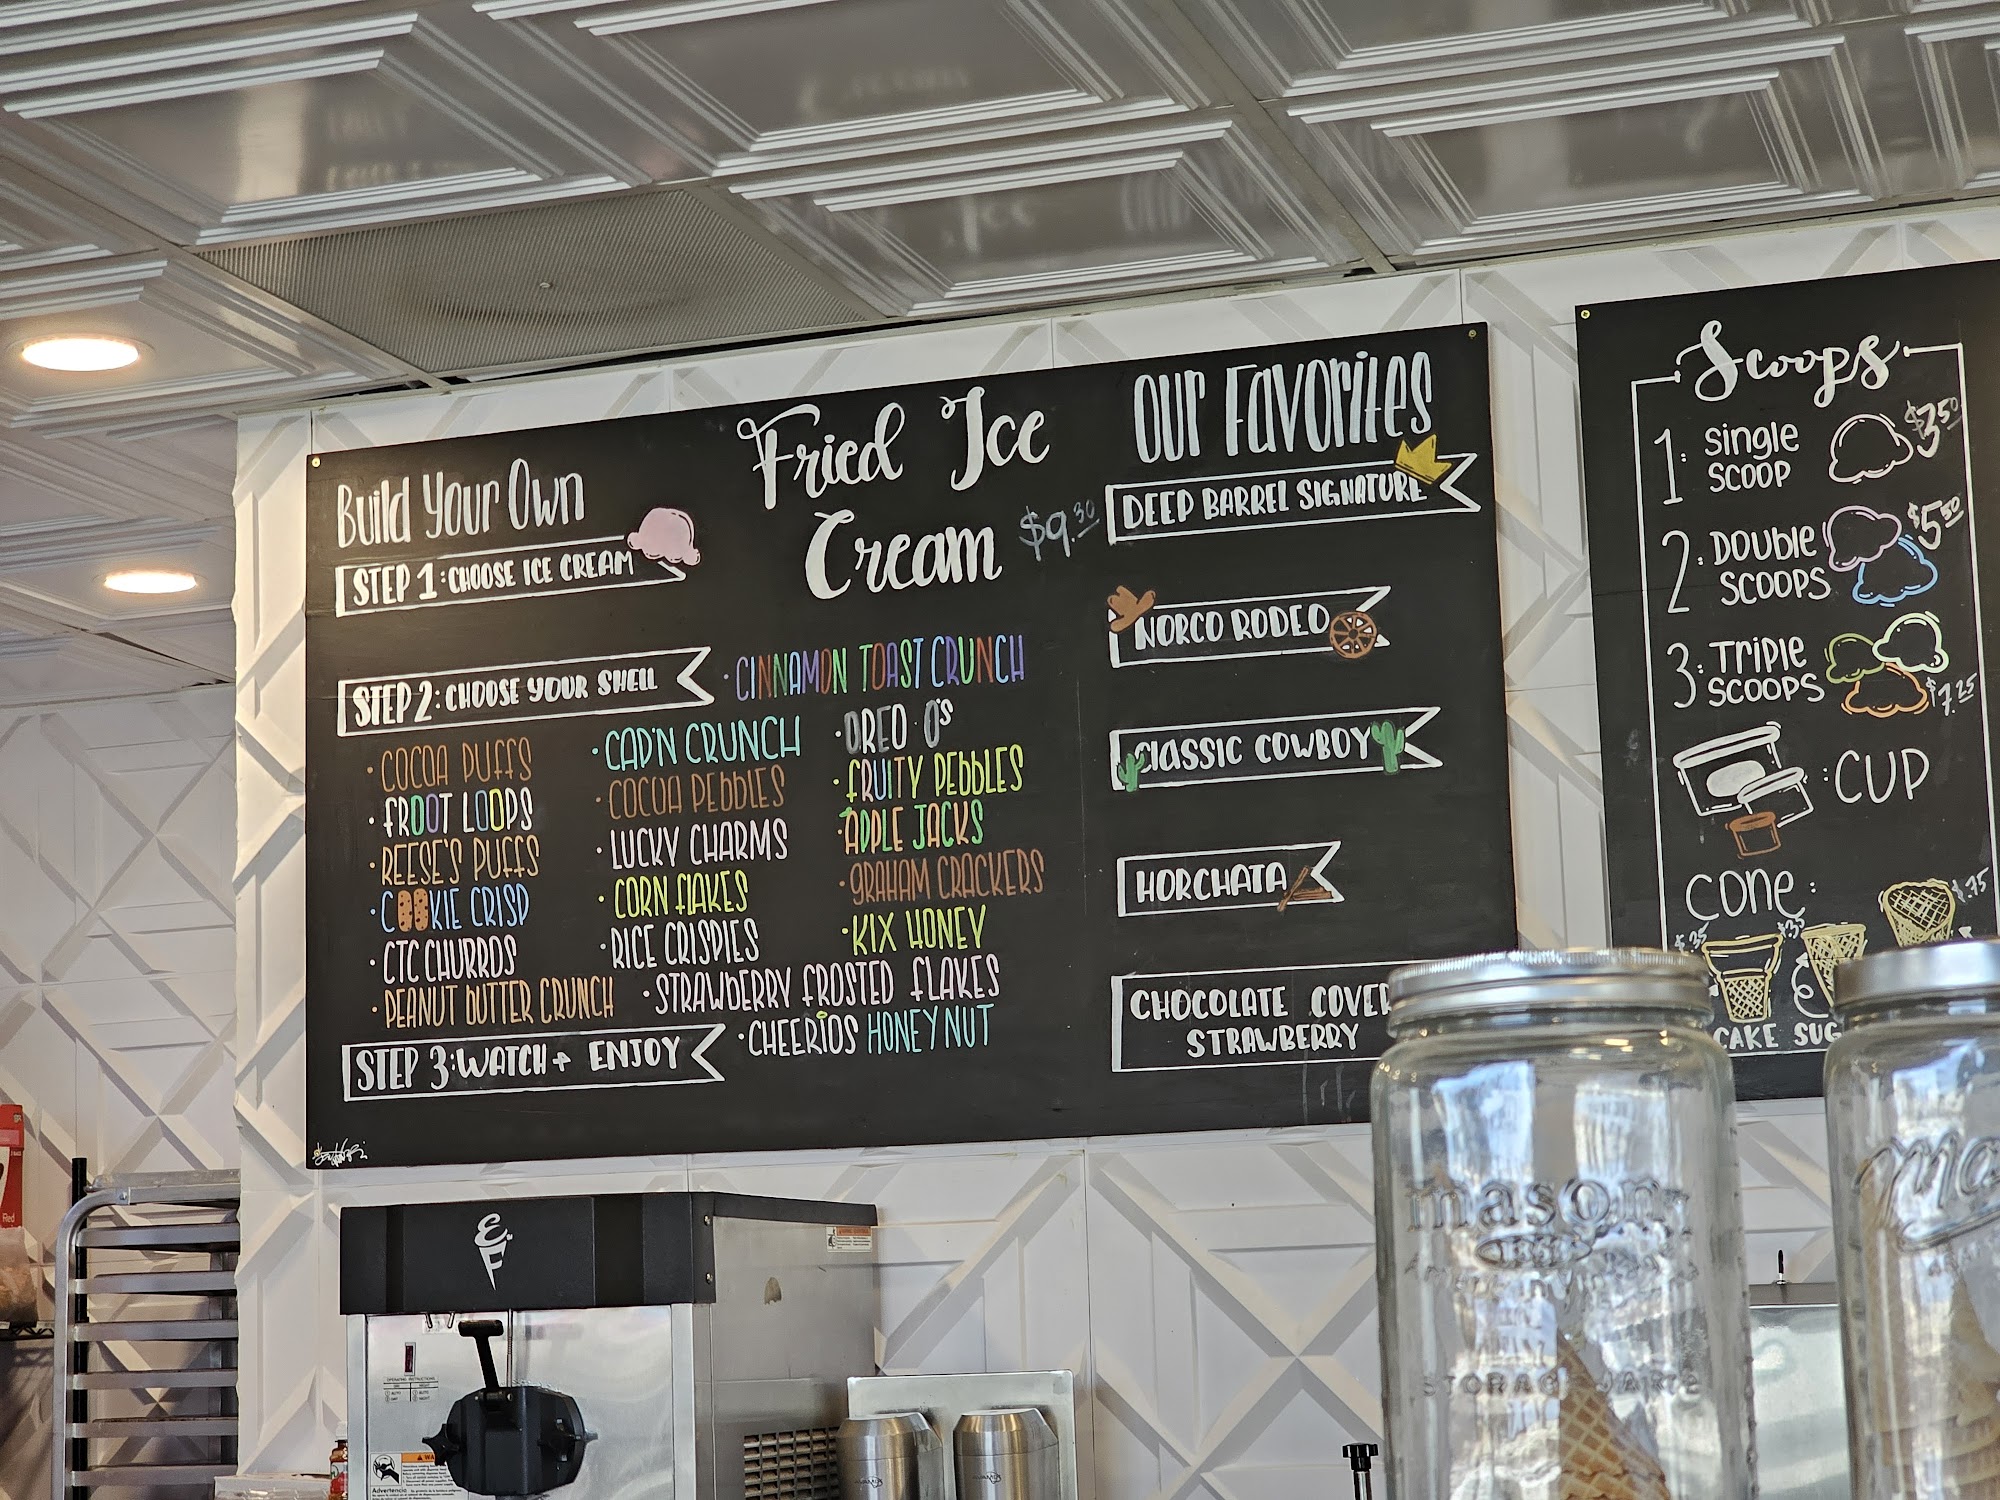 Build Your Own
STEP 1: CHOOSE ICE CREAM
STEP 2: CHOOSE YOUR SHELL
· COCOA PUFFS
· FROOT LOOPS
· REESE'S PUFFS
· COOKIE CRISP
· CTC CHURROS
· PEANUT BUTTER CRUNCH
· CAP'N CRUNCH
· COCOA PEBBLES
· LUCKY CHARMS
· CORN FLAKES
· RICE CRISPIES
· STRAWBERRY FROSTED FLAKES
· CINNAMON TOAST CRUNCH
· OREO O'S
· FRUITY PEBBLES
· APPLE JACKS
· GRAHAM CRACKERS
· KIX HONEY
· CHEERIOS HONEY NUT
STEP 3: WATCH + ENJOY
Fried Ice
Cream $9.30
Our Favorites
DEEP BARREL SIGNATURE
NORCO RODEO
CLASSIC COWBOY
HORCHATA
CHOCOLATE COVER
STRAWBERRY
Scoops
1: Single SCOOP $3.50
2: DOUBLE SCOOPS $5.50
3: TRIPLE SCOOPS $7.25
: CUP
CONE:
$.35 $.35 $.75
CAKE SUG
EF
mason
1858
STORAGE
Ma
Advertencia
Red